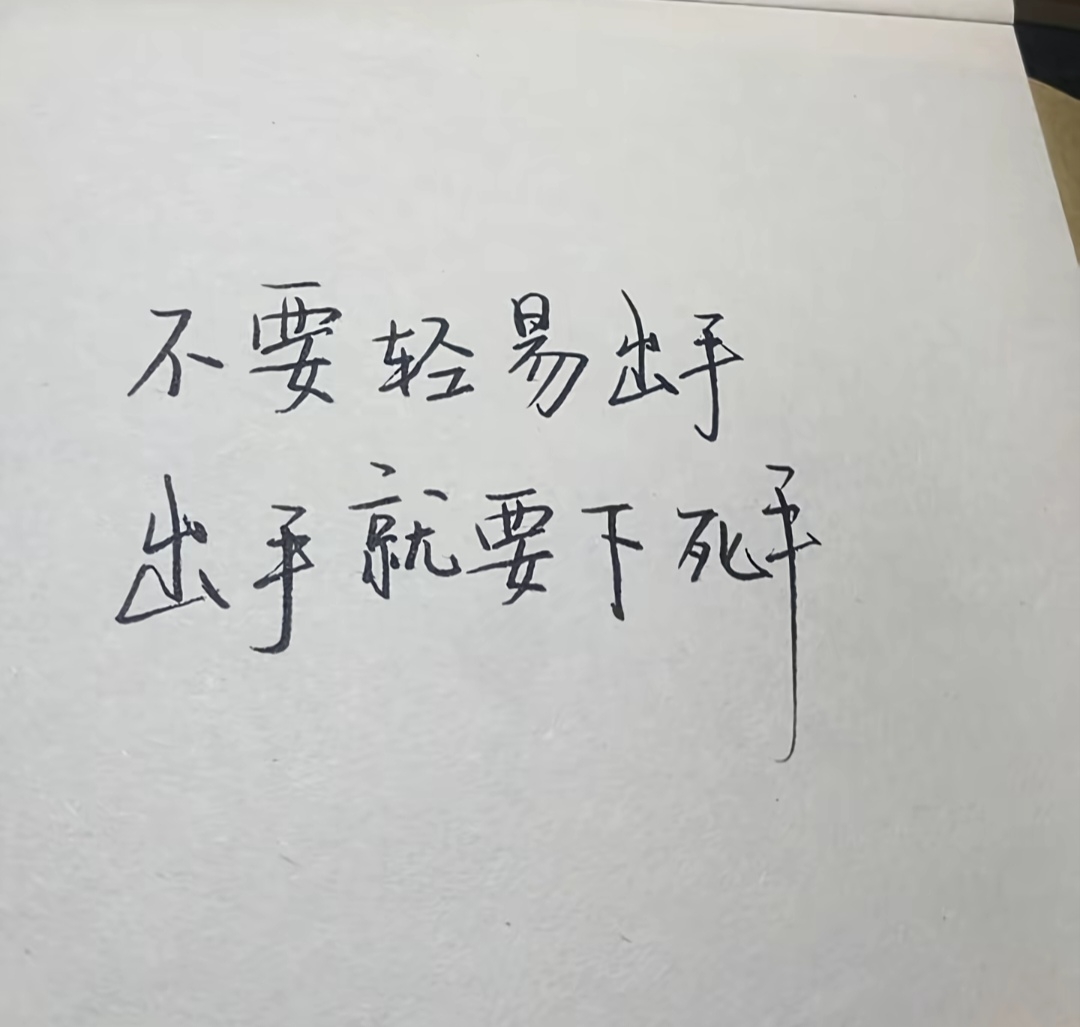 不要轻易出手
出手就要下死手